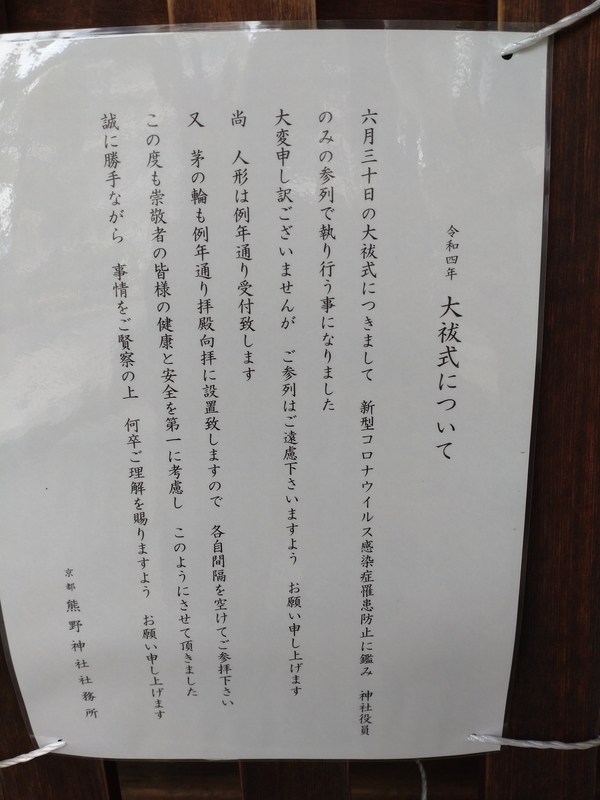 令和四年 大祓式について
六月三十日の大祓式につきまして 新型コロナウイルス感染症罹患防止に鑑み 神社役員
のみの参列で執り行う事になりました
大変申し訳ございませんが ご参列はご遠慮下さいますよう お願い申し上げます
尚 人形は例年通り受付致します
又 茅の輪も例年通り拝殿向拝に設置致しますので 各自間隔を空けてご参拝下さい
この度も崇敬者の皆様の健康と安全を第一に考慮し このようにさせて頂きました
誠に勝手ながら 事情をご賢察の上 何卒ご理解を賜りますよう お願い申し上げます
京都 熊野神社社務所